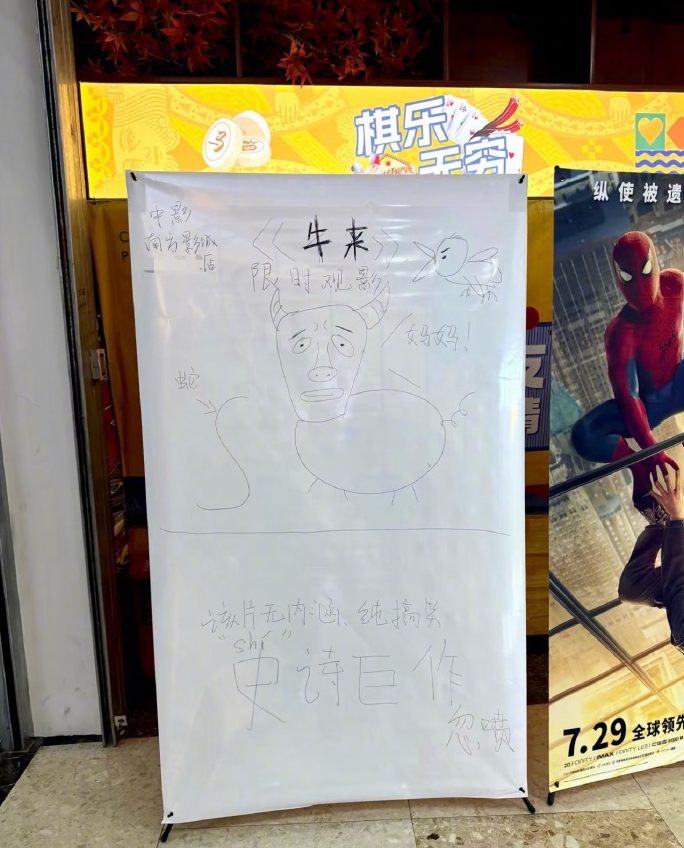 棋乐
无穷
中影
南方影城
店
《牛来》
限时观影
妈妈！
蛇
该片无内涵、纯搞笑
"shi"
史诗巨作
忽喷
纵使被遗
7.29 全球领先